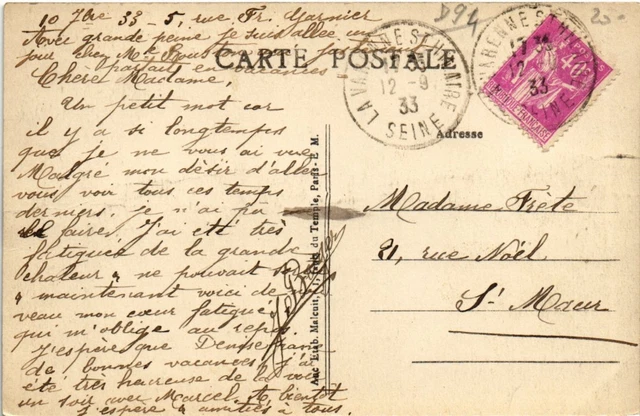 10 7bre 33 - 5, rue Fr. Garnier
Avec grande peine je suis allée un
jour chez Me
partant en vacances
Chère Madame,
Un petit mot car
il y a si longtemps
que je ne vous ai vue
Malgré mon désir d'aller
vous voir tous ces temps
derniers, je n'ai pu
le faire. J'ai été très
fatiguée de la grande
chaleur ne pouvait
maintenant voici de
veau mon cœur fatigué
qui m'oblige au repos
J'espère que Denyse
de bonnes vacances, j'ai
été très heureuse de la voir
un soir avec Marcel. A bientôt
j'espère amitiés à tous.
CARTE POSTALE
Adresse
D94
20-
LA VARENNE ST HILAIRE
12 - 9
33
SEINE
VARENNE ST
17 30
12
33
SEINE
40c
Madame Frété
21, rue Noël
St Maur
Anc. Etab. Malcuit, Fbg du Temple, Paris - E. M.